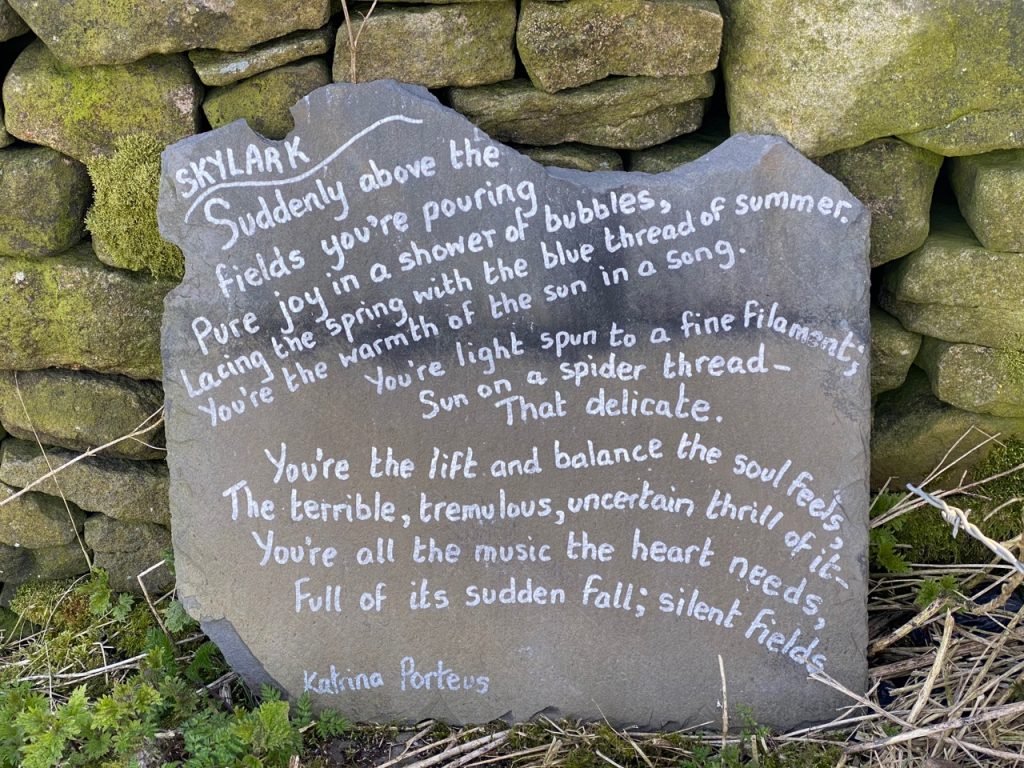 SKYLARK
Suddenly above the
fields you're pouring
Pure joy in a shower of bubbles,
Lacing the spring with the blue thread of summer.
You're the warmth of the sun in a song.
You're light spun to a fine filament;
Sun on a spider thread–
That delicate.
You're the lift and balance the soul feels,
The terrible, tremulous, uncertain thrill of it–
You're all the music the heart needs,
Full of its sudden fall; silent fields
Katrina Porteus